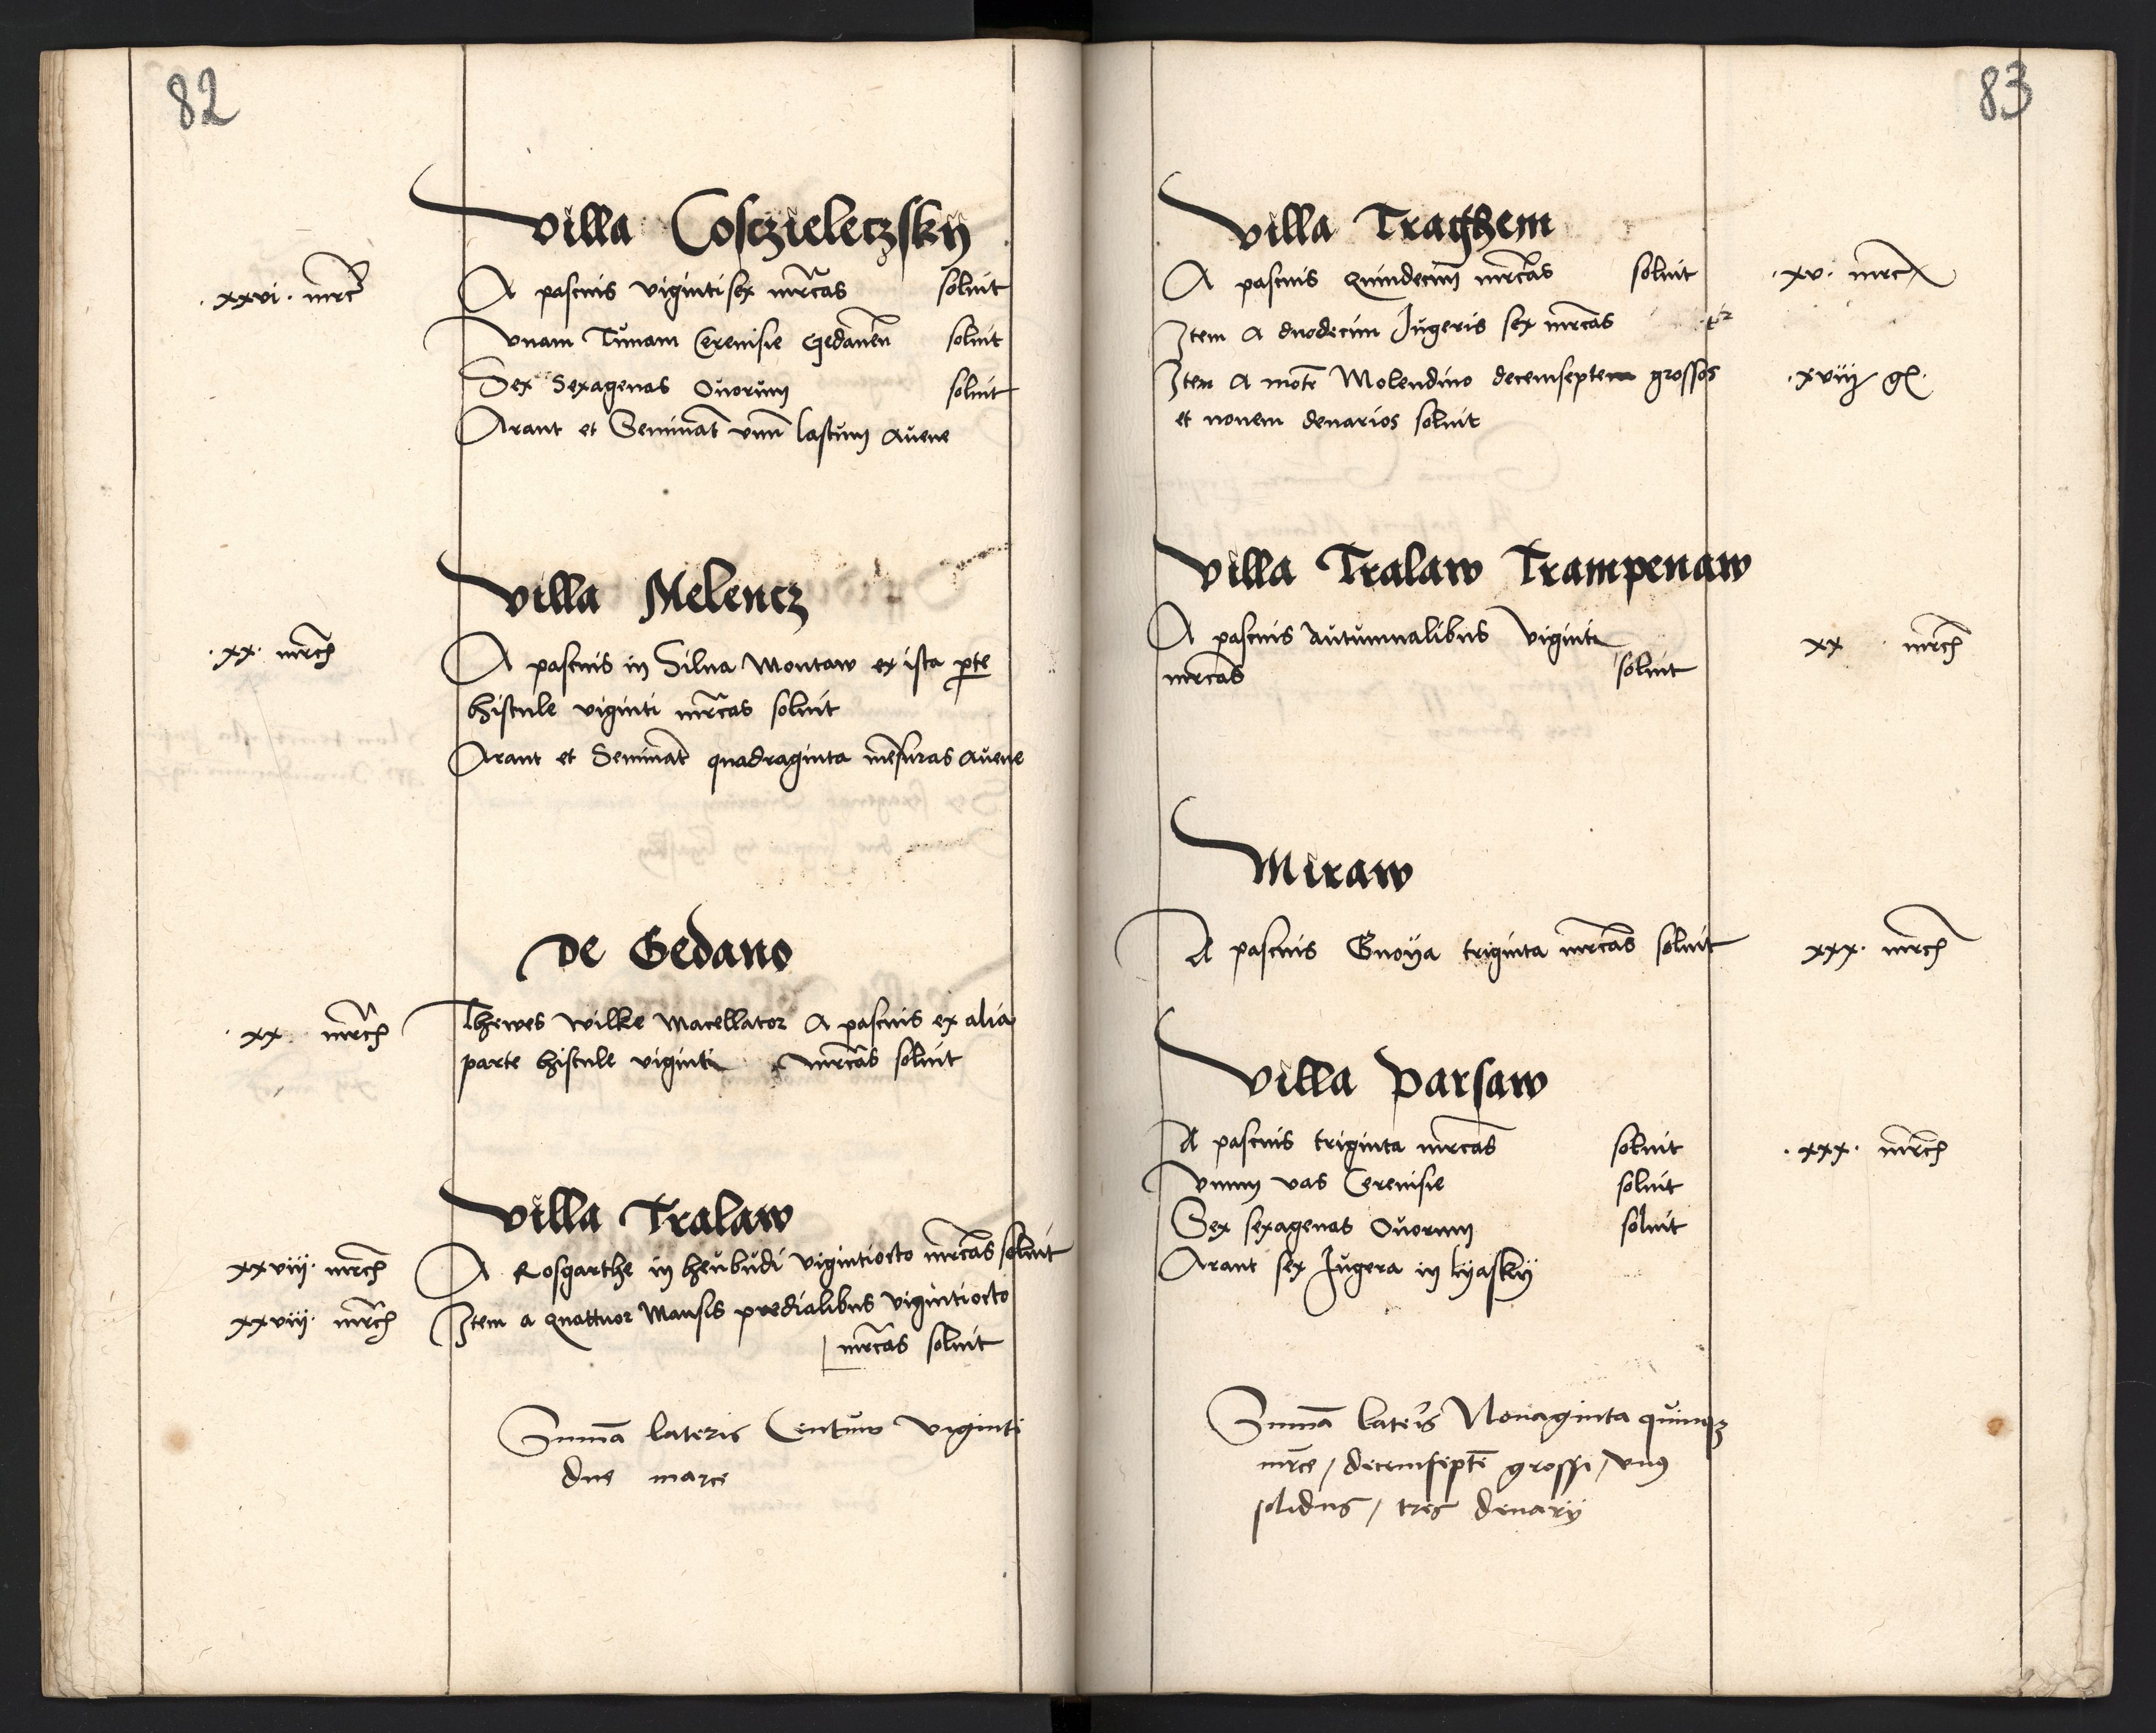 82
villa Cosczieleczsky
.xxvi. mrc
A pascuis vigintisex mrcas soluit
vnam Tunam Cereuisie Gedanen soluit
Sex Sexagenas Ouorum soluit
Arant et Seminat vnu lastum auene
villa Melencz
.xx. mrc
A pascuis in Silua Montaw ex ista pte
histule viginti mrcas soluit
Arant et Seminat quadraginta mesuras auene
De Gedano
.xx. mrc
Thewes wilke Macellator A pascuis ex alia
parte histule viginti mrcas soluit
villa Tralaw
xxviii. mrc
A Rosgarthe in heubudi vigintiocto mrcas soluit
xxviii. mrc
Item a quattuor Mansis predialibus vigintiocto
mrcas soluit
Suma lateris Centum viginti
due marce
83
villa Traghem
A pascuis Quindecim mrcas soluit .xv. mrc
Item A duodecim Jugeris sex mrcas
Item A mote Molendino decemseptem grossos .xviij gl.
et nouem denarios soluit
villa Tralaw Trampenaw
A pascuis autumnalibus viginti
mrcas soluit
xx mrc
Miraw
A pascuis Gnoya triginta mrcas soluit xxx. mrc
villa Parsaw
A pascuis triginta mrcas soluit .xxx. mrc
vnum vas Cereuisie soluit
Sex sexagenas Ouorum soluit
Arant sex Jugera in lyasky
Suma lateris Nonaginta quinqz
mrce / decemsepte grossi / vnus
solidus / tres denarij